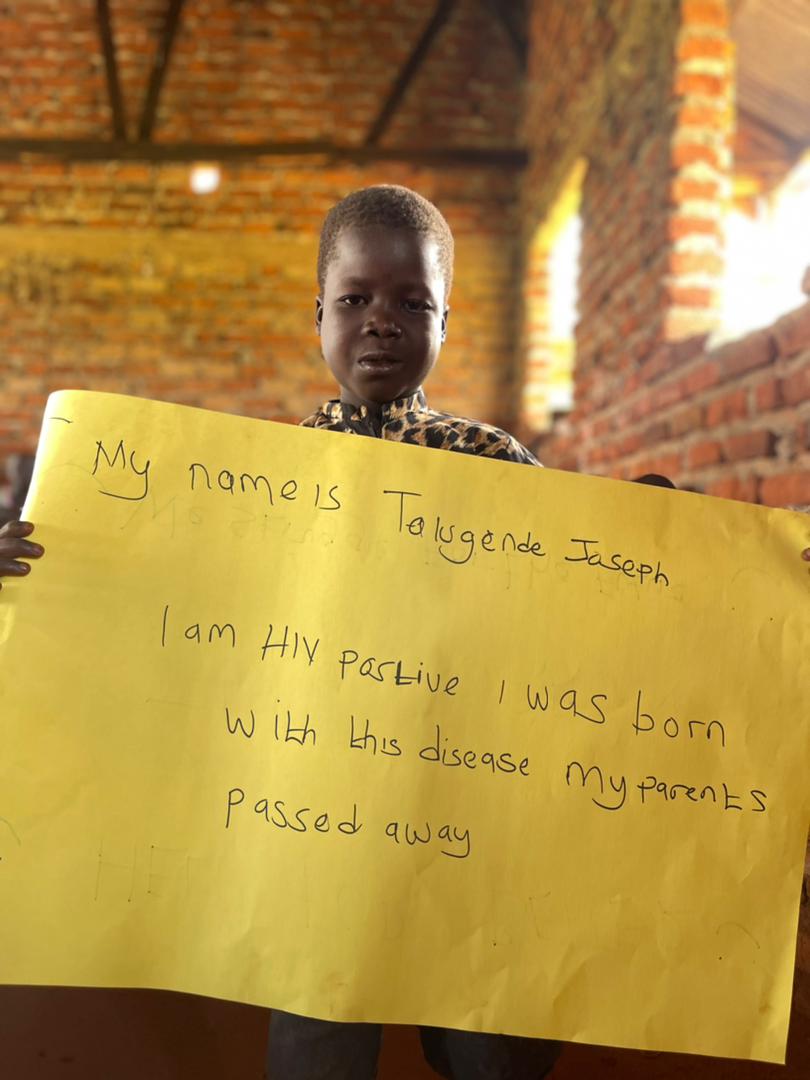 My name is Talugende Jaseph
I am HIV partive I was born
with this disease My parents
passed away